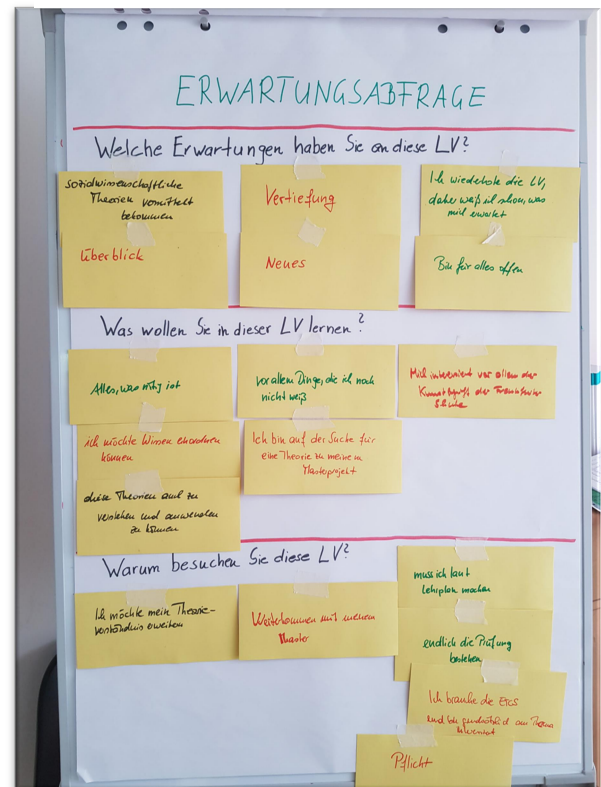 ERWARTUNGSABFRAGE
Welche Erwartungen haben Sie an diese LV?
sozialwissenschaftliche
Theorien vermittelt
bekommen
Vertiefung
Ich wiederhole die LV,
daher weiß ich schon, was
mich erwartet
Überblick
Neues
Bin für alles offen
Was wollen Sie in dieser LV lernen?
Alles, was nötig ist
vor allem Dinge, die ich noch
nicht weiß
Mich interessiert vor allem der
Kunstbegriff der Frankfurter
Schule
ich möchte Wissen einordnen
können
Ich bin auf der Suche für
eine Theorie zu meinem
Masterprojekt
diese Theorien auch zu
verstehen und anwenden
zu können
Warum besuchen Sie diese LV?
Ich möchte mein Theorie-
verständnis erweitern
Weiterkommen mit meinem
Master
muss ich laut
Lehrplan machen
endlich die Prüfung
bestehen
Ich brauche die ECTS
und bin grundsätzlich am Thema
interessiert
Pflicht